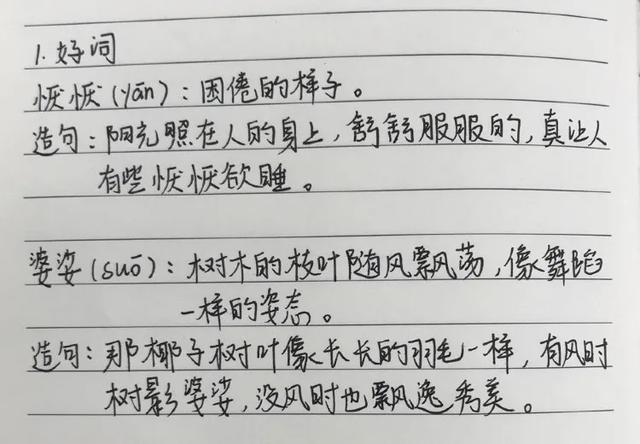 1. 好词
恹恹(yān)：困倦的样子。
造句：阳光照在人的身上，舒舒服服的，真让人
有些恹恹欲睡。
婆娑(suō)：树木的枝叶随风飘荡，像舞蹈
一样的姿态。
造句：那椰子树叶像长长的羽毛一样，有风时
树影婆娑，没风时也飘逸秀美。